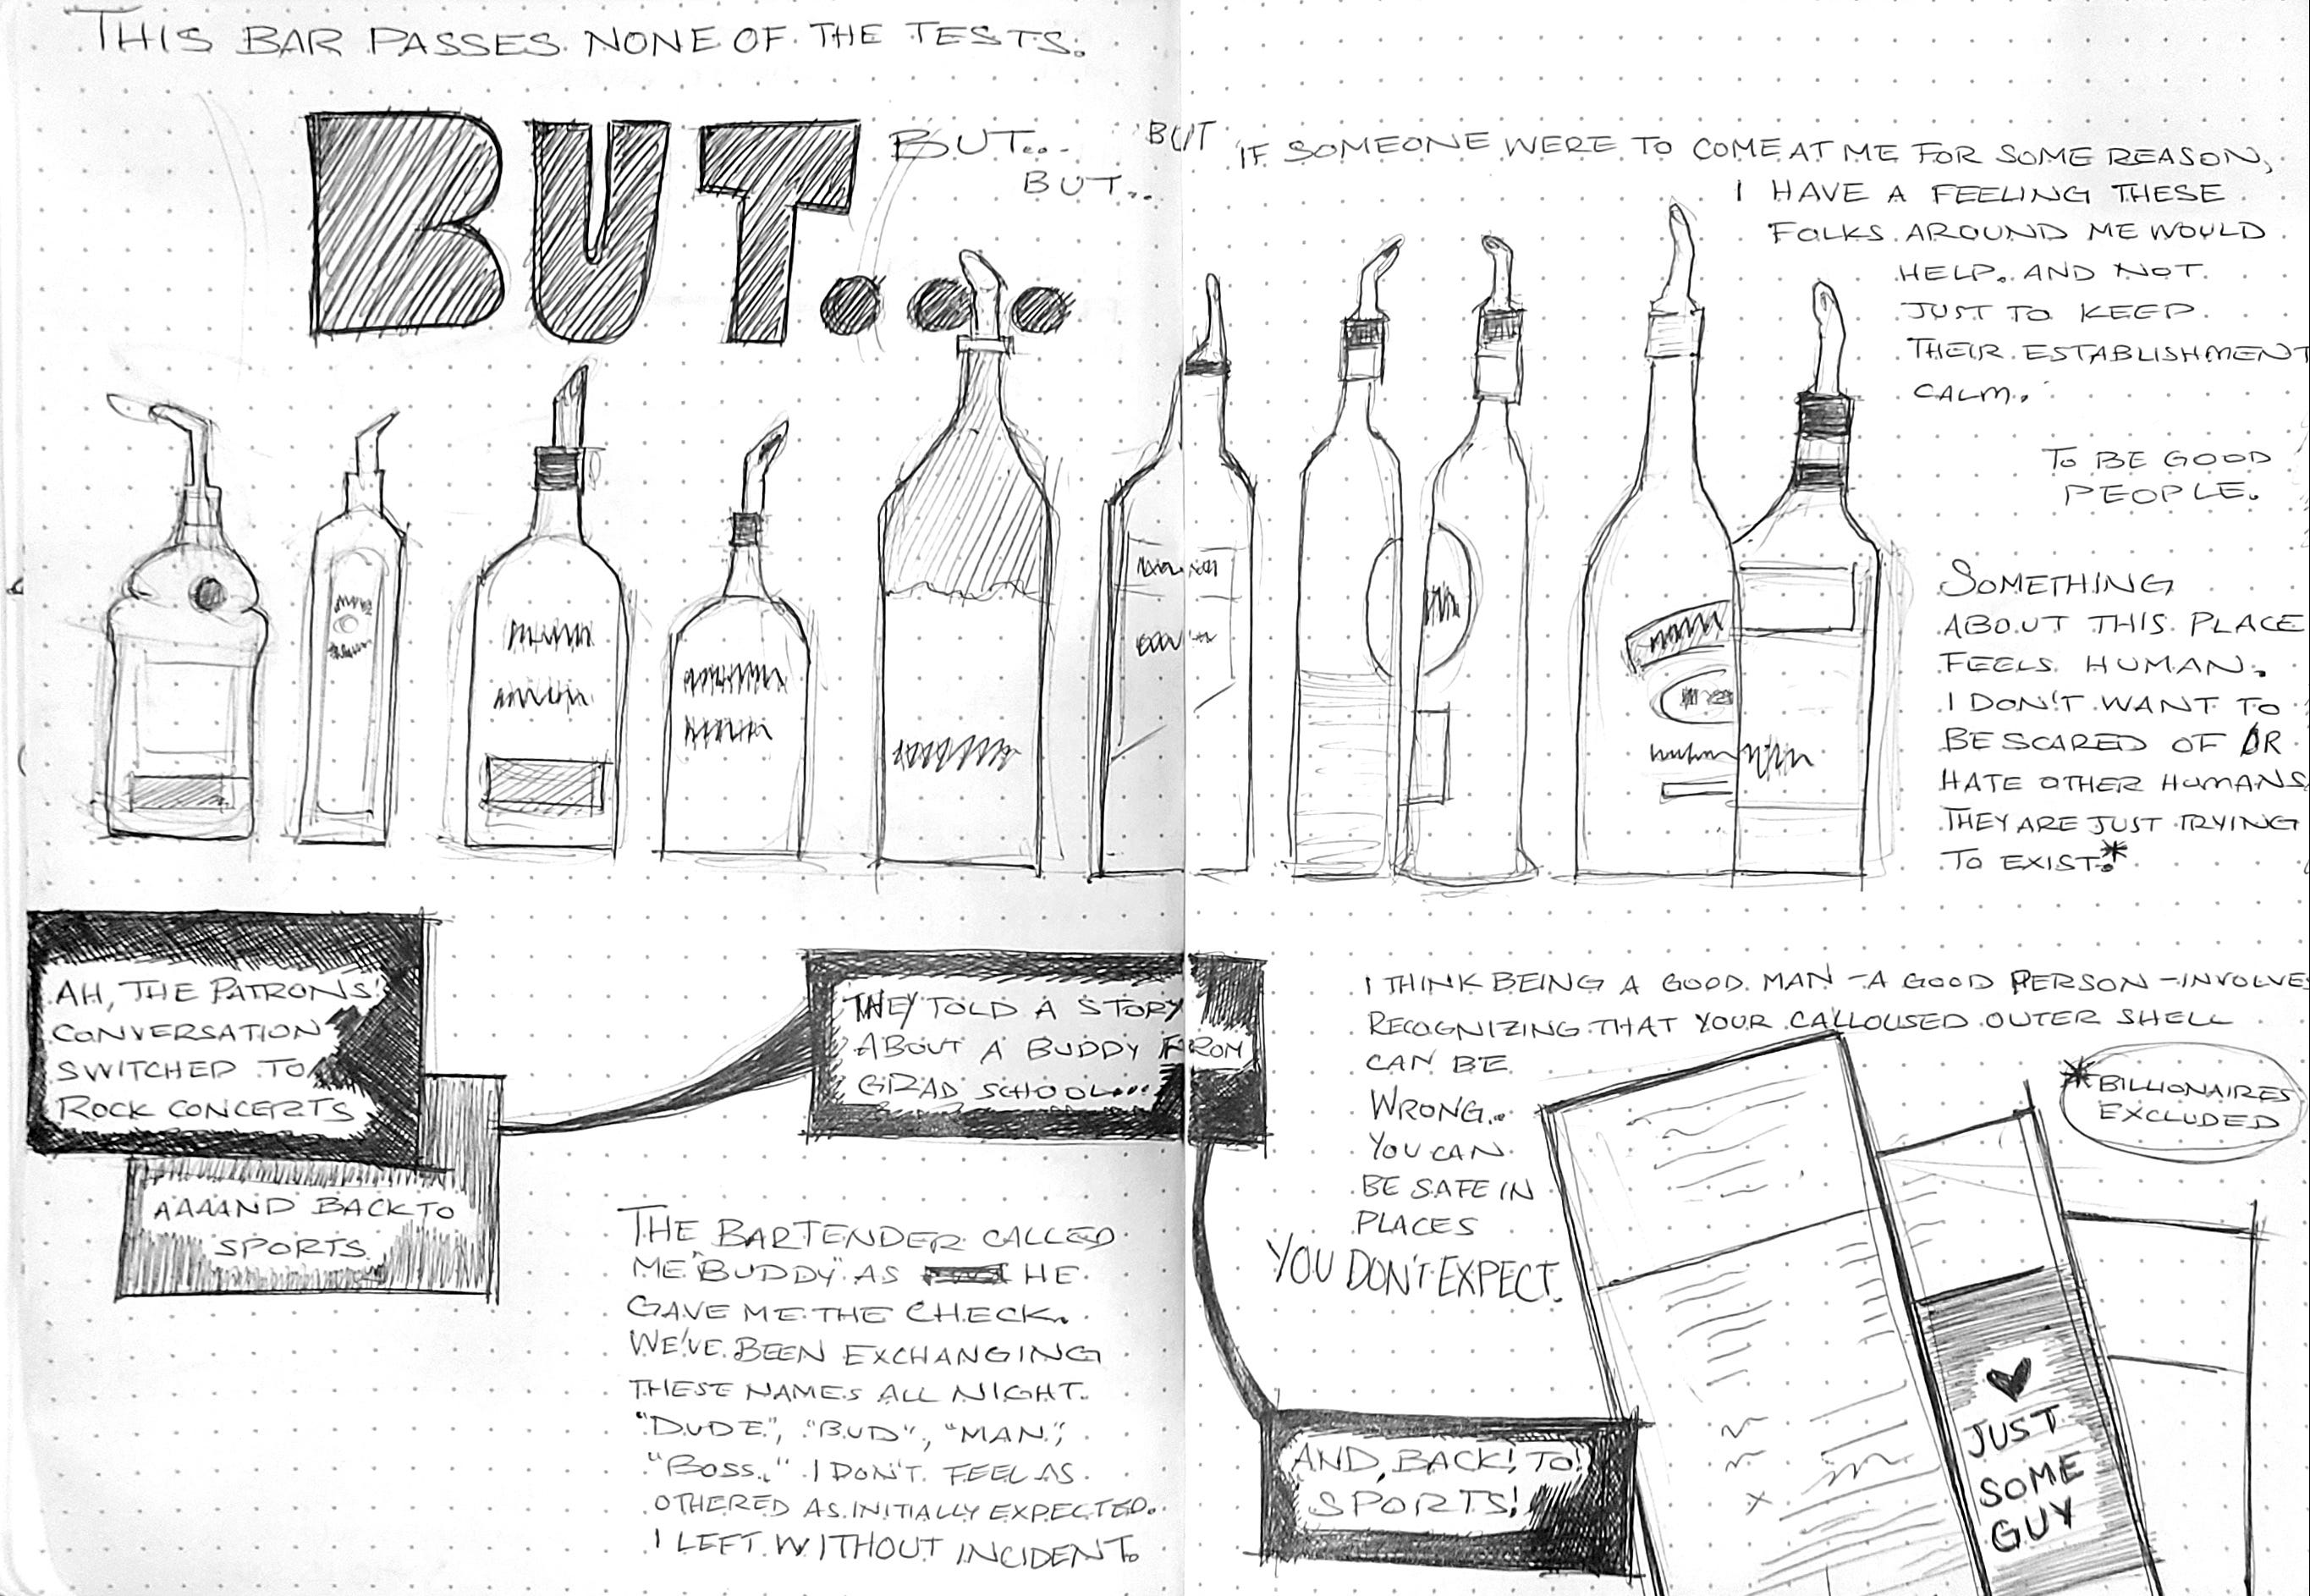 THIS BAR PASSES NONE OF THE TESTS.
BUT...
BUT...
BUT...
BUT IF SOMEONE WERE TO COME AT ME FOR SOME REASON,
I HAVE A FEELING THESE
FOLKS AROUND ME WOULD
HELP. AND NOT
JUST TO KEEP
THEIR ESTABLISHMENT
CALM.
TO BE GOOD
PEOPLE.
SOMETHING
ABOUT THIS PLACE
FEELS HUMAN.
I DON'T WANT TO
BE SCARED OF OR
HATE OTHER HUMANS
THEY ARE JUST TRYING
TO EXIST.*
AH, THE PATRONS'
CONVERSATION
SWITCHED TO
ROCK CONCERTS
AAAAND BACK TO
SPORTS
THEY TOLD A STORY
ABOUT A BUDDY FROM
GRAD SCHOOL...
THE BARTENDER CALLED
ME "BUDDY" AS HE
GAVE ME THE CHECK.
WE'VE BEEN EXCHANGING
THESE NAMES ALL NIGHT.
"DUDE", "BUD", "MAN",
"BOSS." I DON'T FEEL AS
OTHERED AS INITIALLY EXPECTED.
I LEFT WITHOUT INCIDENT.
I THINK BEING A GOOD MAN -A GOOD PERSON -INVOLVES
RECOGNIZING THAT YOUR CALLOUSED OUTER SHELL
CAN BE
WRONG.
YOU CAN
BE SAFE IN
PLACES
YOU DON'T EXPECT.
*BILLIONAIRES
EXCLUDED
AND, BACK! TO!
SPORTS!
♥
JUST
SOME
GUY